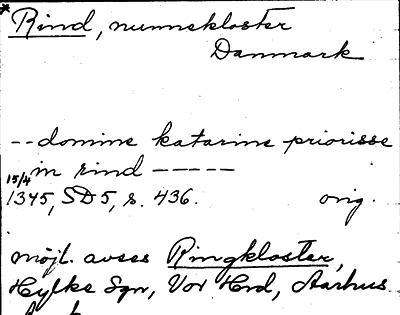 * Rind, nunnekloster
Danmark
-- domine katarine priorisse
in rind -----
15/4
1345, SD 5, s. 436. orig.
möjl. avses Ringkloster,
Hylke Sgn, Vor Hrd, Aarhus